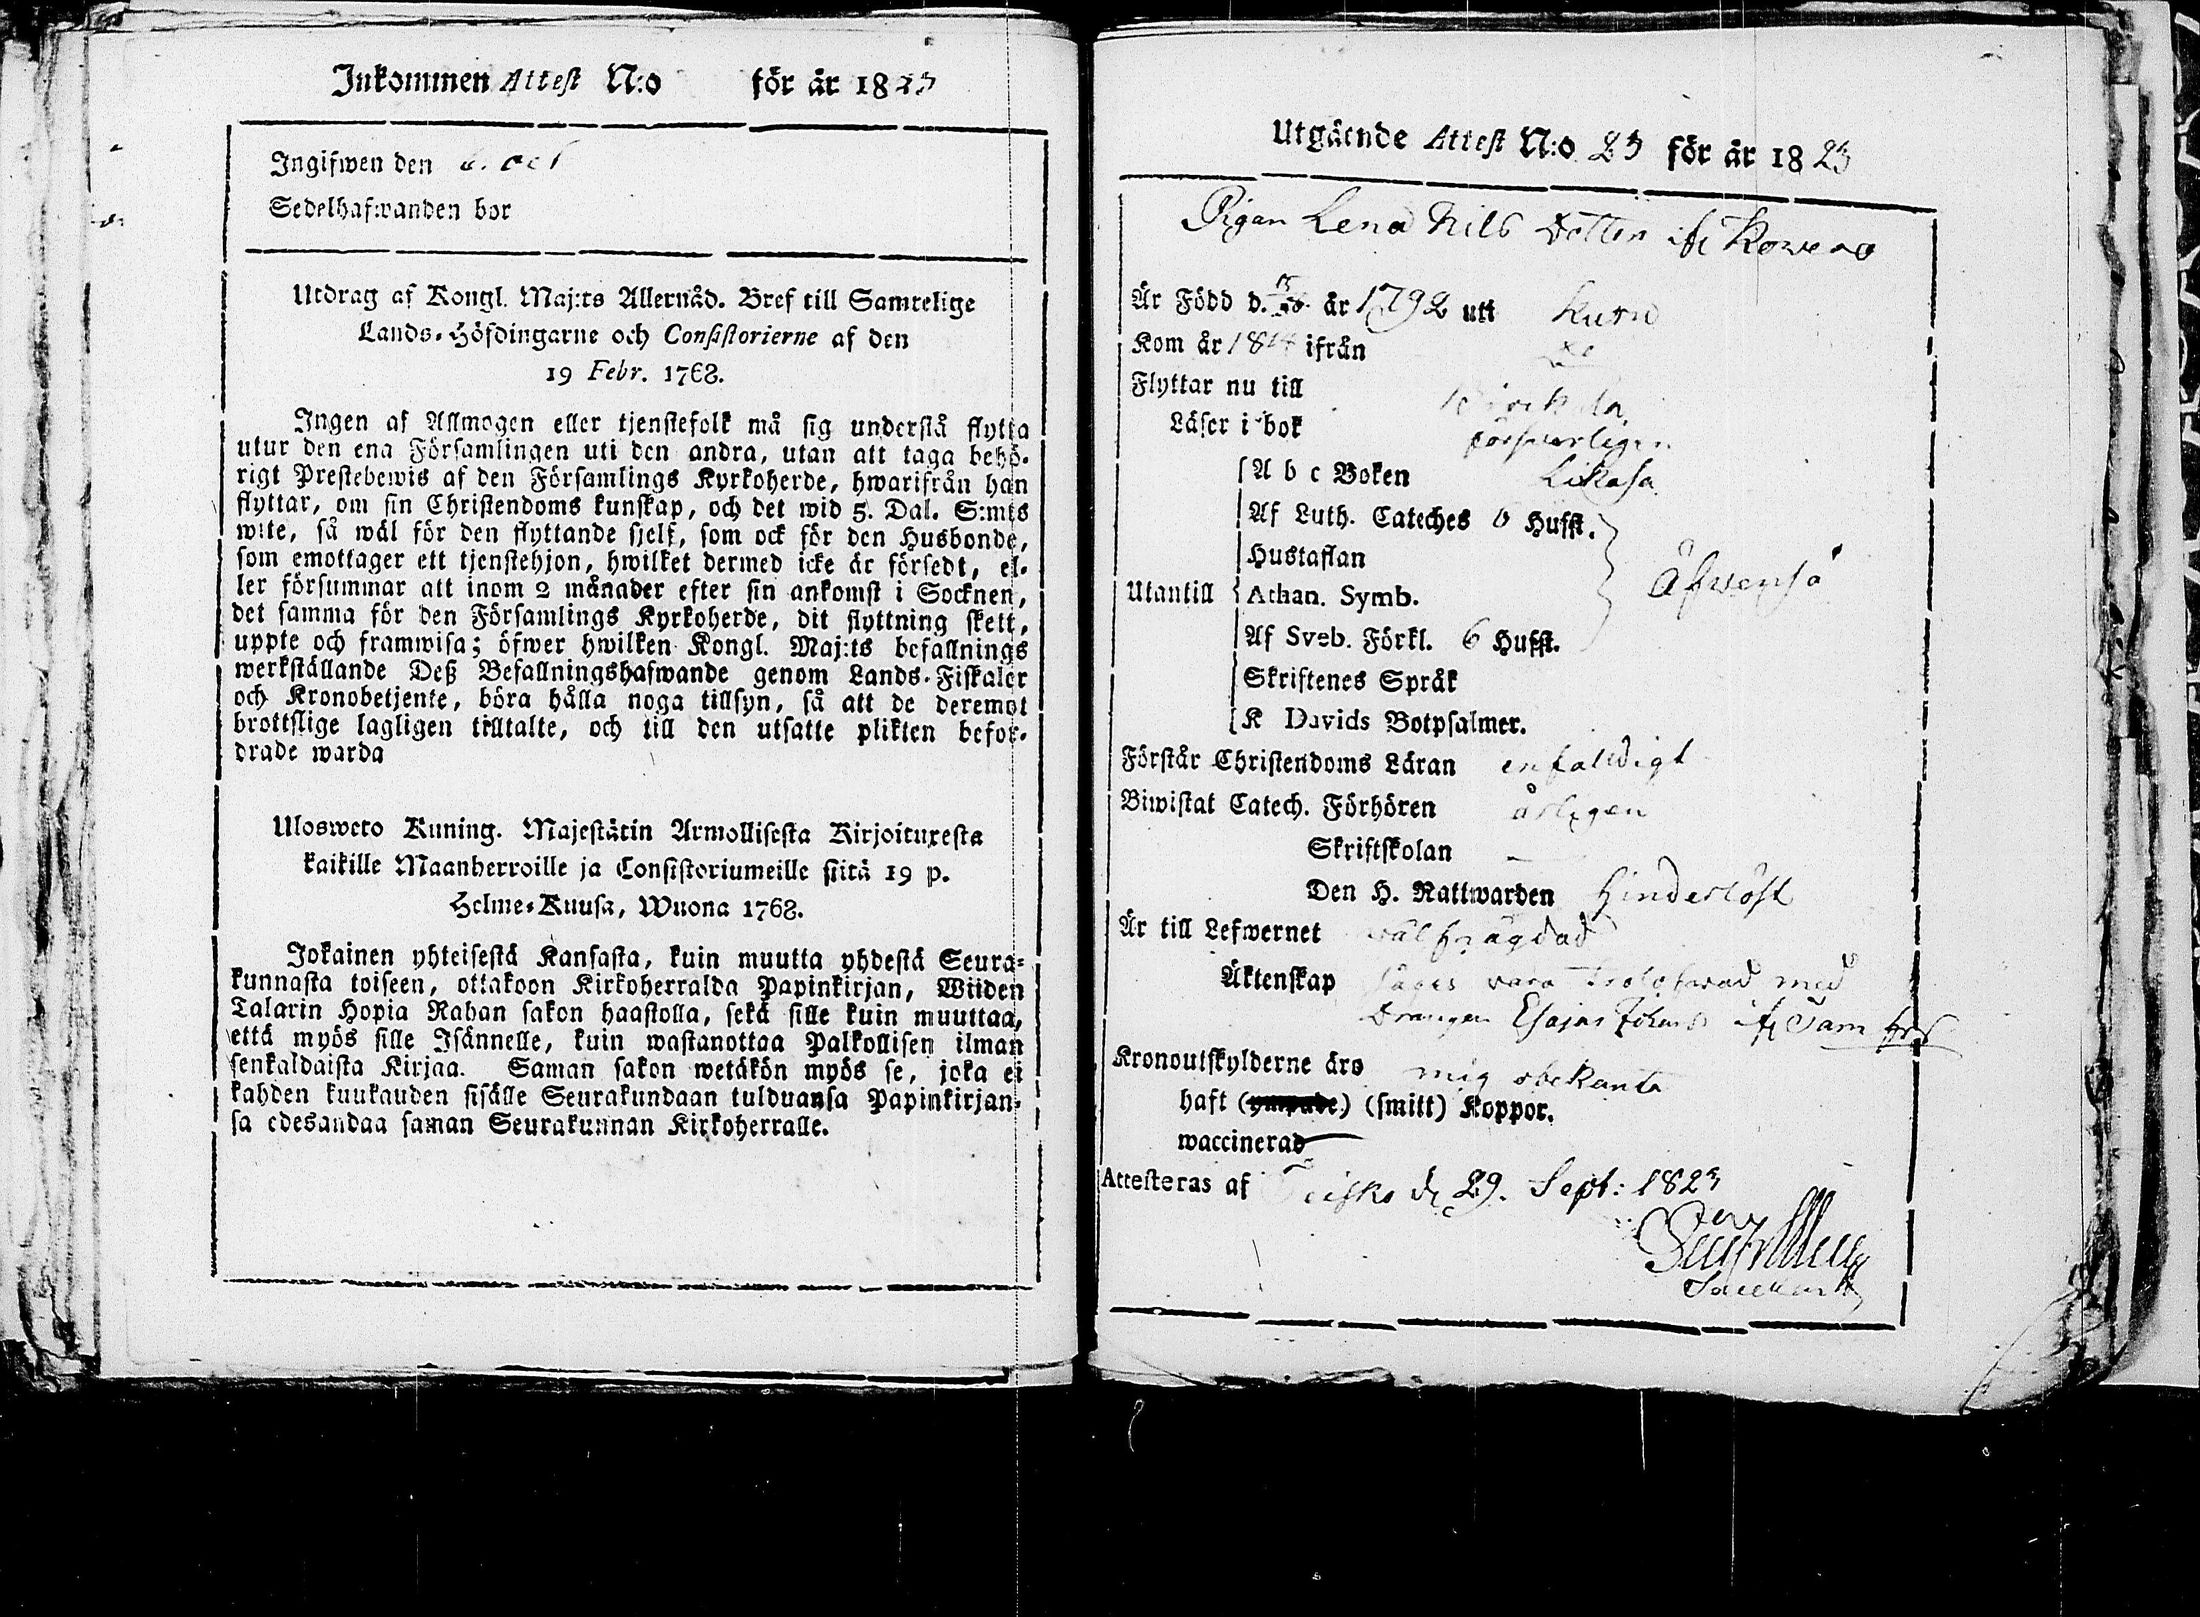 Inkommen Attest N:o för år 1823
Ingifwen den 6. oct
Sedelhafwanden bor
Utdrag af Kongl. Maj:ts Allernåd. Bref till Samtelige
Lands-Höfdingarne och Consistorierne af den
19 Febr. 1768.
Ingen af Allmogen eller tjenstefolk må sig understå flytta
utur den ena Församlingen uti den andra, utan att taga behö-
rigt Prestebewis af den Församlings Kyrkoherde, hwarifrån han
flyttar, om sin Christendoms kunskap, och det wid 5. Dal. S:mts
wite, så wäl för den flyttande sjelf, som ock för den Husbonde,
som emottager ett tjenstehjon, hwilket dermed icke är försedt, el-
ler försummar att inom 2 månader efter sin ankomst i Socknen,
det samma för den Församlings Kyrkoherde, dit flyttning skett,
uppte och framwisa; öfwer hwilken Kongl. Maj:ts befallnings
werkställande Deß Befallningshafwande genom Lands-Fiskaler
och Kronobetjente, böra hålla noga tillsyn, så att de deremot
brottslige lagligen tilltalte, och till den utsatte plikten befor-
drade warda
Ulosweto Kuning. Majestätin Armollisesta Kirjoituxesta
kaikille Maanherroille ja Consistoriumeille siitä 19 p.
Helme-Kuusa, Wuona 1768.
Jokainen yhteisestä Kansasta, kuin muutta yhdestä Seura-
kunnasta toiseen, ottakoon Kirkoherralda Papinkirjan, Wiiden
Talarin Hopia Rahan sakon haastolla, sekä sille kuin muuttaa,
että myös sille Isännelle, kuin wastanottaa Palkollisen ilman
senkaldaista Kirjaa. Saman sakon wetäkön myös se, joka ei
kahden kuukauden sisälle Seurakundaan tulduansa Papinkirjan-
sa edesandaa saman Seurakunnan Kirkoherralle.
Utgående Attest N:o 23 för år 1823
Pigan Lena Nils Dotter ifr Kowero
Är Född d. år 1792 uti Kuru
Kom år 1814 ifrån Do
Flyttar nu till Birkala
Läser i bok försvarligen
A b c Boken Likaså
Af Luth. Cateches 6 Hufst.
Hustaflan
Utantill Athan. Symb. Äfvenså
Af Sveb. Förkl. 6 Hufst.
Skriftenes Språk
K Davids Botpsalmer.
Förstår Christendoms Läran enfaldigt
Biwistat Catech. Förhören årligen
Skriftskolan —
Den H. Nattwarden Hinderlöst
Är till Lefwernet wälfrägdad
Äktenskap säges vara trolofwad med
Drängen Esajas Johans ifr Sam
Kronoutskylderne äro mig obekanta
haft (ympade) (smitt) Koppor.
waccinerad
Attesteras af Teisko d. 29. Sept: 1823